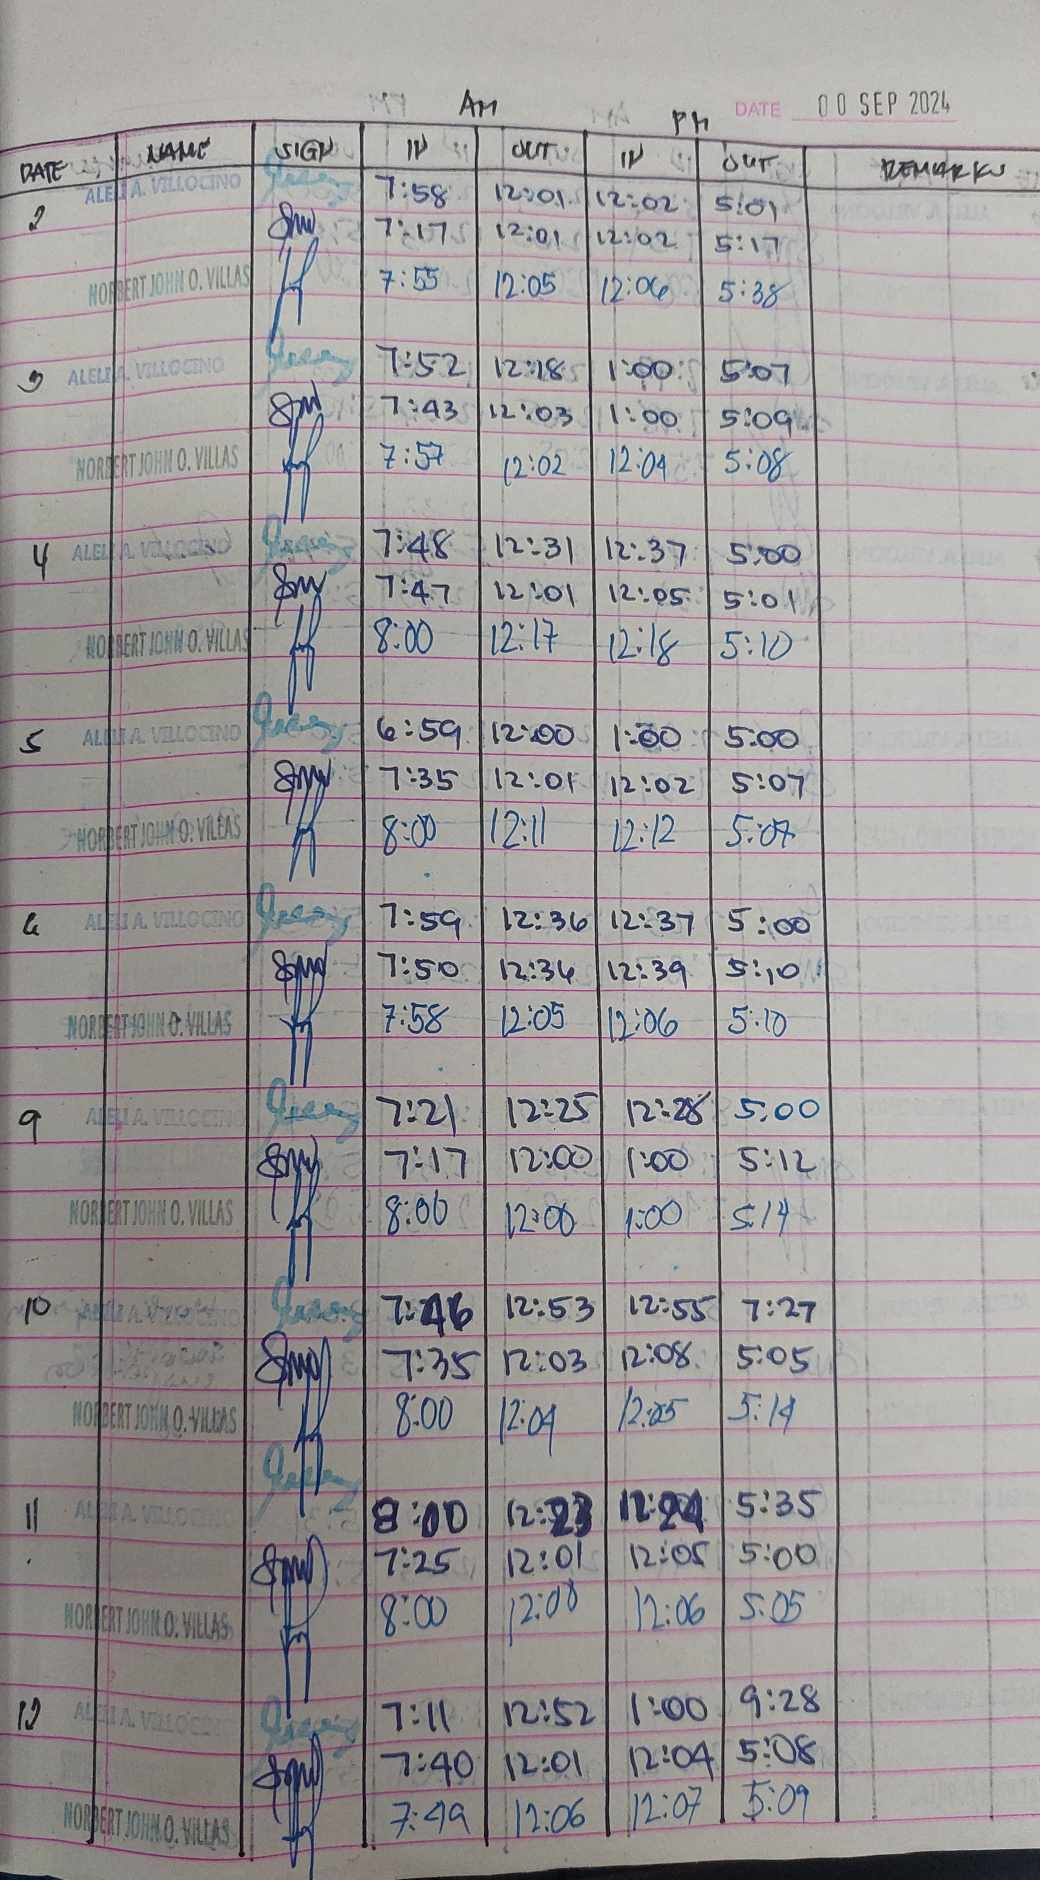 AM PM DATE 00 SEP 2024
DATE NAME SIGN IN OUT IN OUT REMARKS
2 ALELI A. VILLOCINO 7:58 12:01 12:02 5:01
7:17 12:01 12:02 5:17
NORBERT JOHN O. VILLAS 7:55 12:05 12:06 5:38
3 ALELI A. VILLOCINO 7:52 12:18 1:00 5:07
7:43 12:03 1:00 5:09
NORBERT JOHN O. VILLAS 7:57 12:02 12:04 5:08
4 ALELI A. VILLOCINO 7:48 12:31 12:37 5:00
7:47 12:01 12:05 5:01
NORBERT JOHN O. VILLAS 8:00 12:17 12:18 5:10
5 ALELI A. VILLOCINO 6:59 12:00 1:00 5:00
7:35 12:01 12:02 5:07
NORBERT JOHN O. VILLAS 8:00 12:11 12:12 5:07
6 ALELI A. VILLOCINO 7:59 12:36 12:37 5:00
7:50 12:36 12:39 5:10
NORBERT JOHN O. VILLAS 7:58 12:05 12:06 5:10
9 ALELI A. VILLOCINO 7:21 12:25 12:28 5:00
7:17 12:00 1:00 5:12
NORBERT JOHN O. VILLAS 8:00 12:00 1:00 5:14
10 ALELI A. VILLOCINO 7:46 12:53 12:55 7:27
7:35 12:03 12:08 5:05
NORBERT JOHN O. VILLAS 8:00 12:04 12:05 5:14
11 ALELI A. VILLOCINO 8:00 12:23 12:24 5:35
7:25 12:01 12:05 5:00
NORBERT JOHN O. VILLAS 8:00 12:00 12:06 5:05
12 ALELI A. VILLOCINO 7:11 12:52 1:00 9:28
7:40 12:01 12:04 5:08
NORBERT JOHN O. VILLAS 7:49 12:06 12:07 5:09